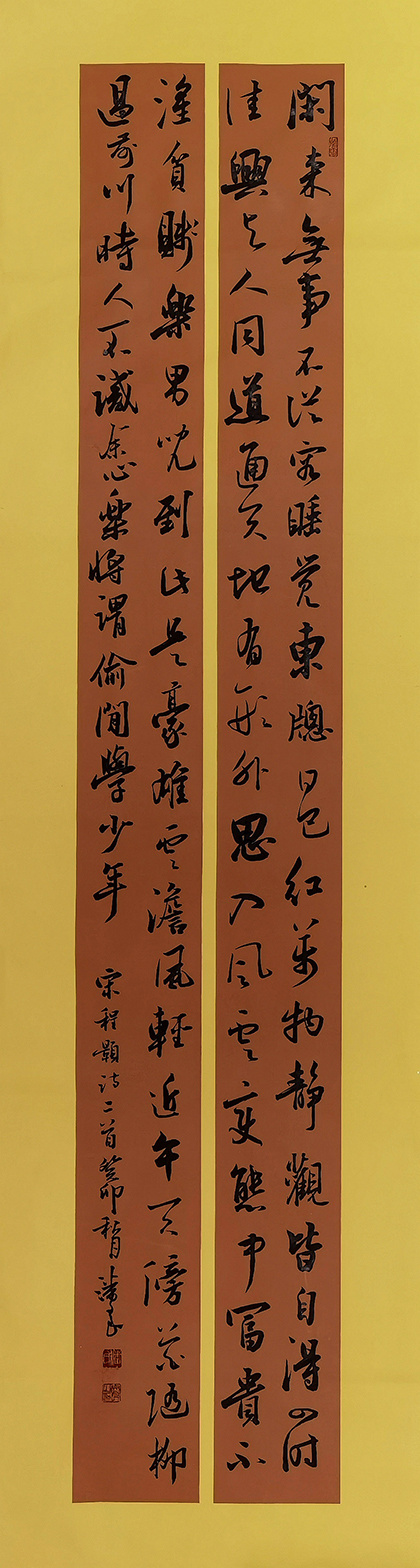 閑来無事不從容睡覺東牕日已紅萬物靜觀皆自得四時
佳興与人同道通天地有形外思入風雲變態中冨貴不
淫貧賤樂男兒到此是豪雄雲澹風輕近午天傍花隨柳
過前川時人不識余心樂將謂偷閒學少年 宋程顥詩二首癸卯秋月